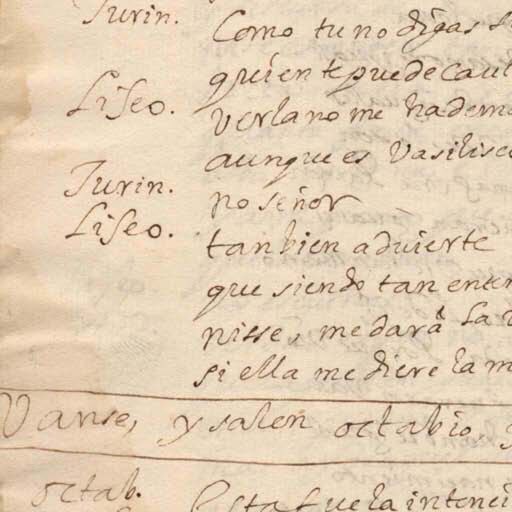 Turin. Como tu no digas
quien te puede caut
Liseo. Verla no me ha de m
aunque es Vasilisc
Turin. no señor
Liseo. tanbien advierte
que siendo tan enten
nisse, me dará la
si ella me diere la m
Vanse, y salen octabio
octab. Esta fue la intenci